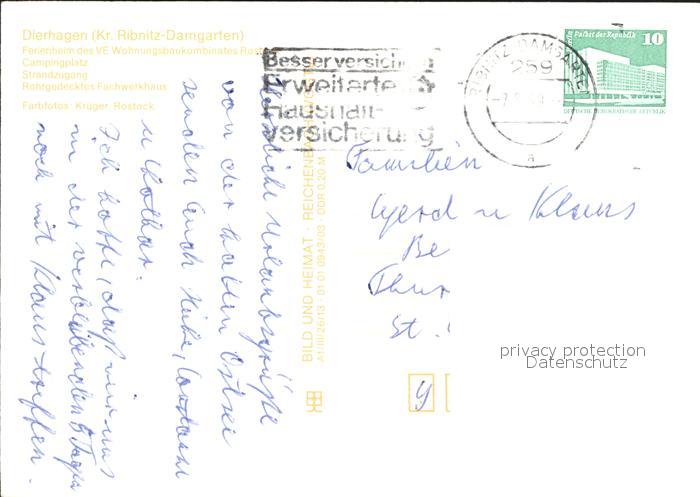 Dierhagen (Kr. Ribnitz-Damgarten)
Ferienheim des VE Wohnungsbaukombinates Rost
Campingplatz
Strandzugang
Rohrgedecktes Fachwerkhaus
Farbfotos: Krüger, Rostock
Besser versich
Erweiterte
Haushalt-
versicherung
RIBNITZ-DAMGARTEN
259
a
Palast der Republik
10
DEUTSCHE DEMOKRATISCHE REPUBLIK
Herzliche Urlaubsgrüße
von der kalten Ostsee
senden Euch
u. Lothar.
Ich hoffe, daß wir uns
in der verbleibenden Tagen
noch mit Klaus treffen.
BILD UND HEIMAT · REICHENB
A1/III/26/13 01 01 0943/03 DDR 0,20 M
Familien
Gerd u Klaus
Be
Thur
St.
privacy protection
Datenschutz